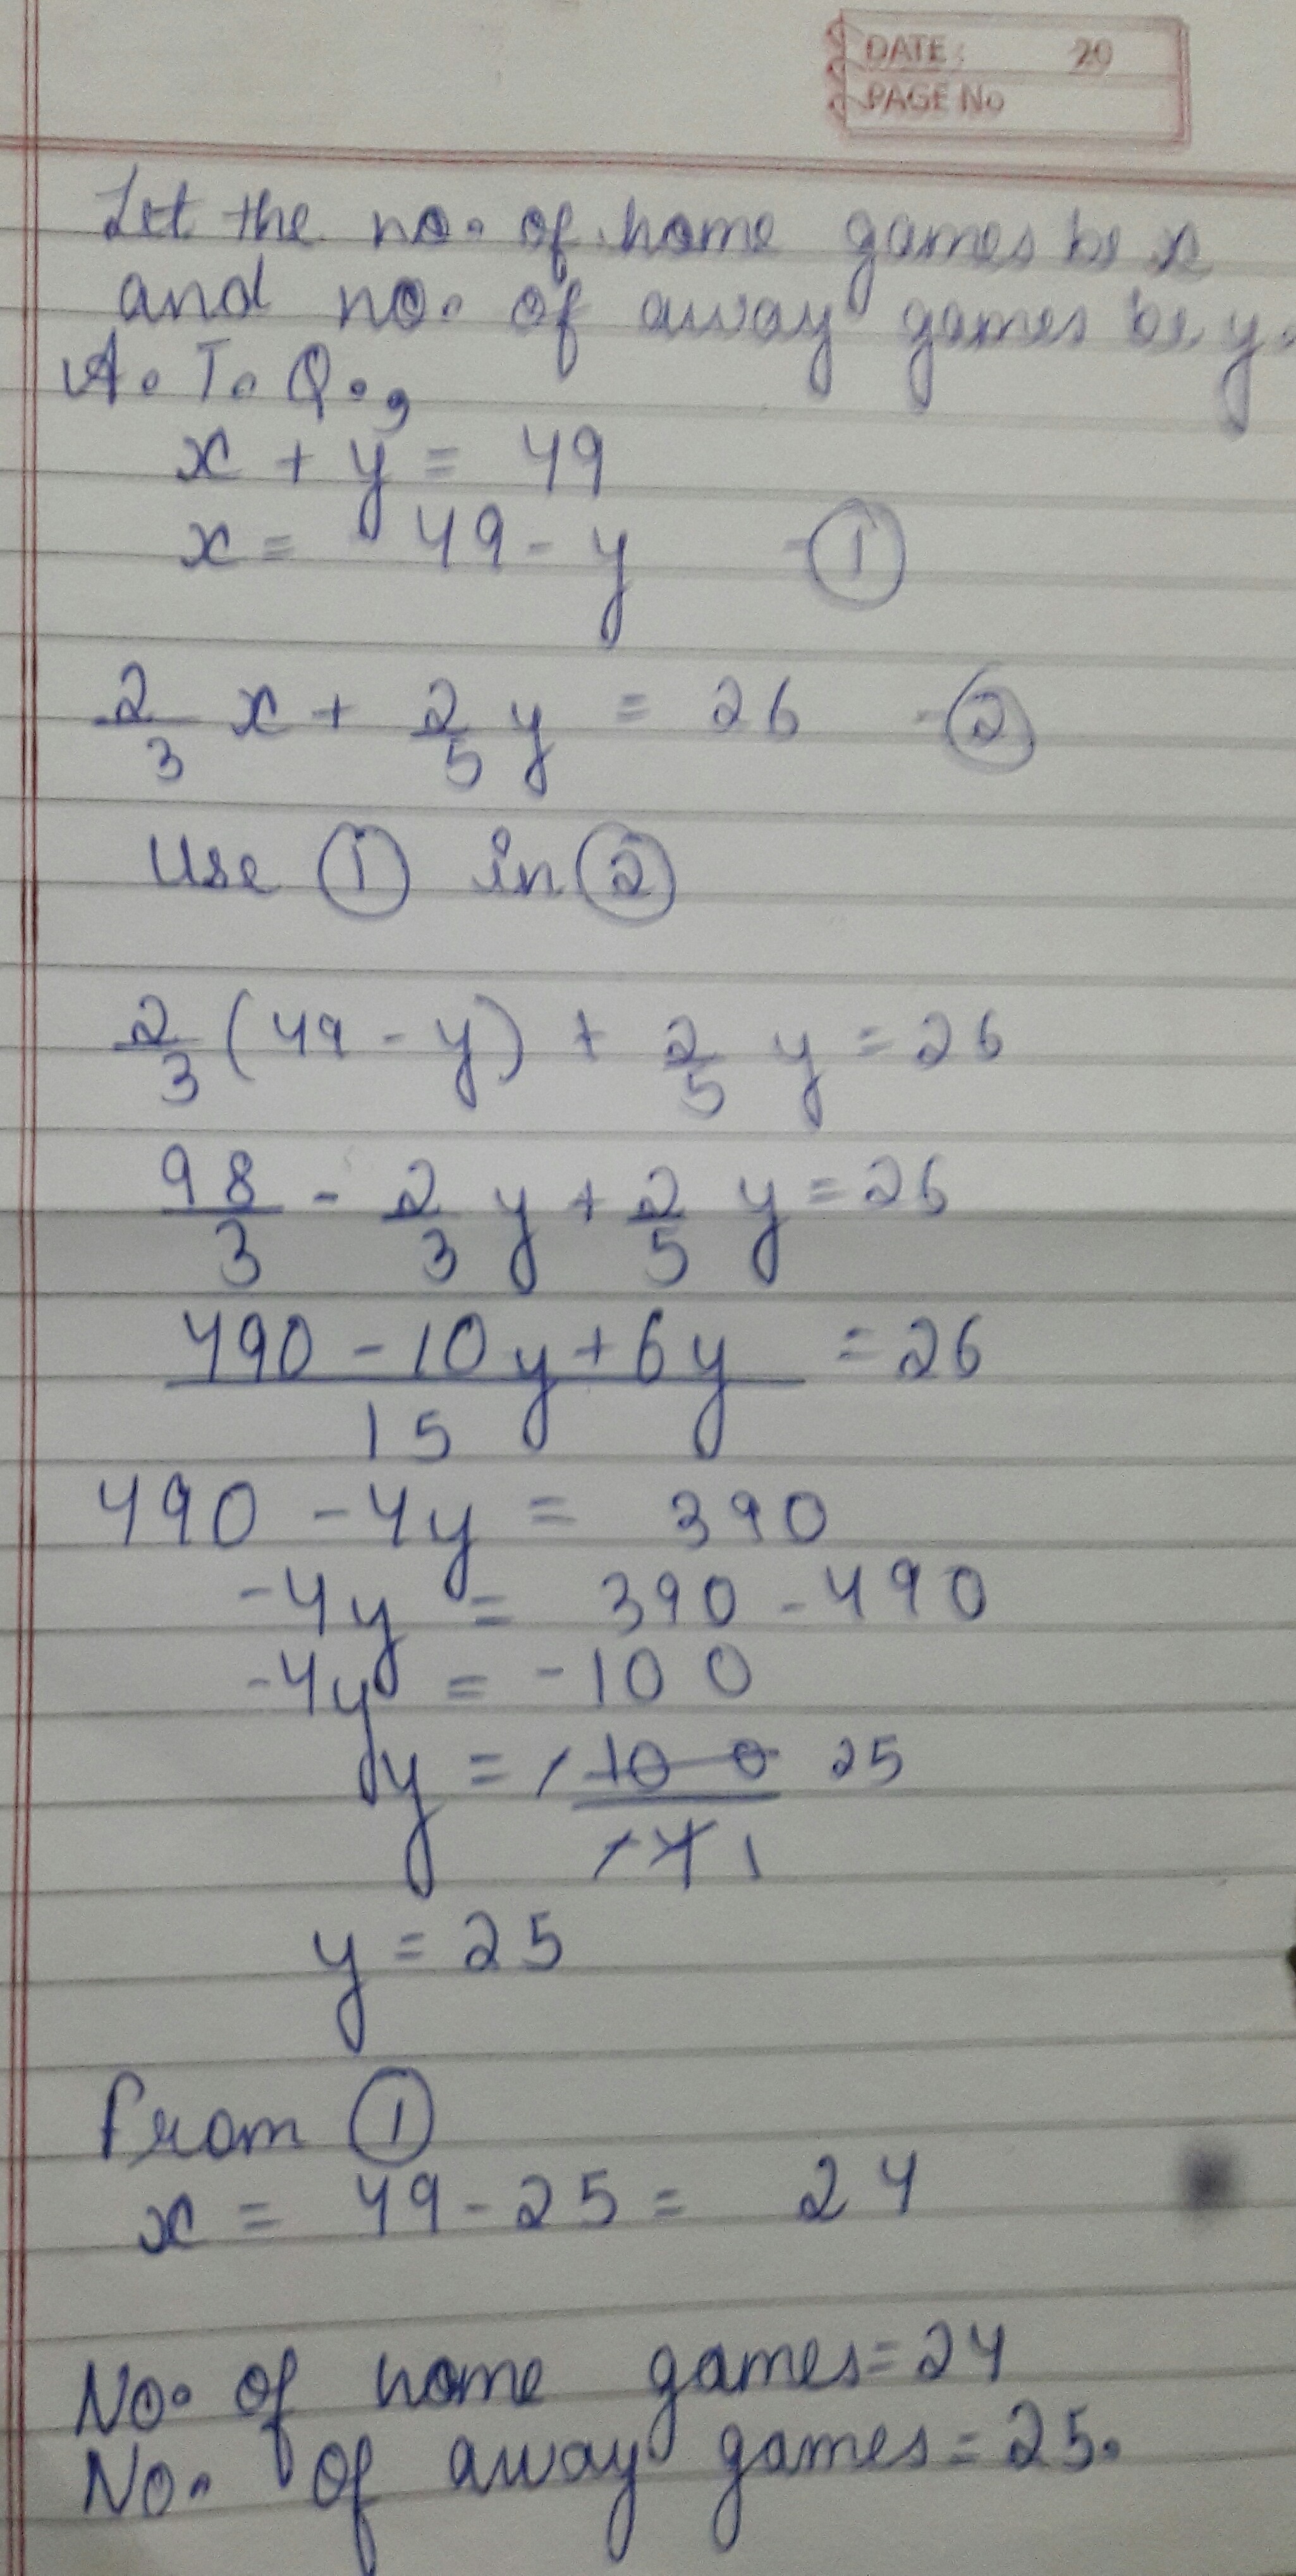 DATE: 20
PAGE No
Let the no. of home games be x
and no. of away games be y.
A. T. Q.,
x + y = 49
x = 49 - y - ①
2/3 x + 2/5 y = 26 - ②
Use ① in ②
2/3 (49 - y) + 2/5 y = 26
98/3 - 2/3 y + 2/5 y = 26
490 - 10y + 6y / 15 = 26
490 - 4y = 390
-4y = 390 - 490
-4y = -100
y = -100/-4 25 1
y = 25
From ①
x = 49 - 25 = 24
No. of home games = 24
No. of away games = 25.